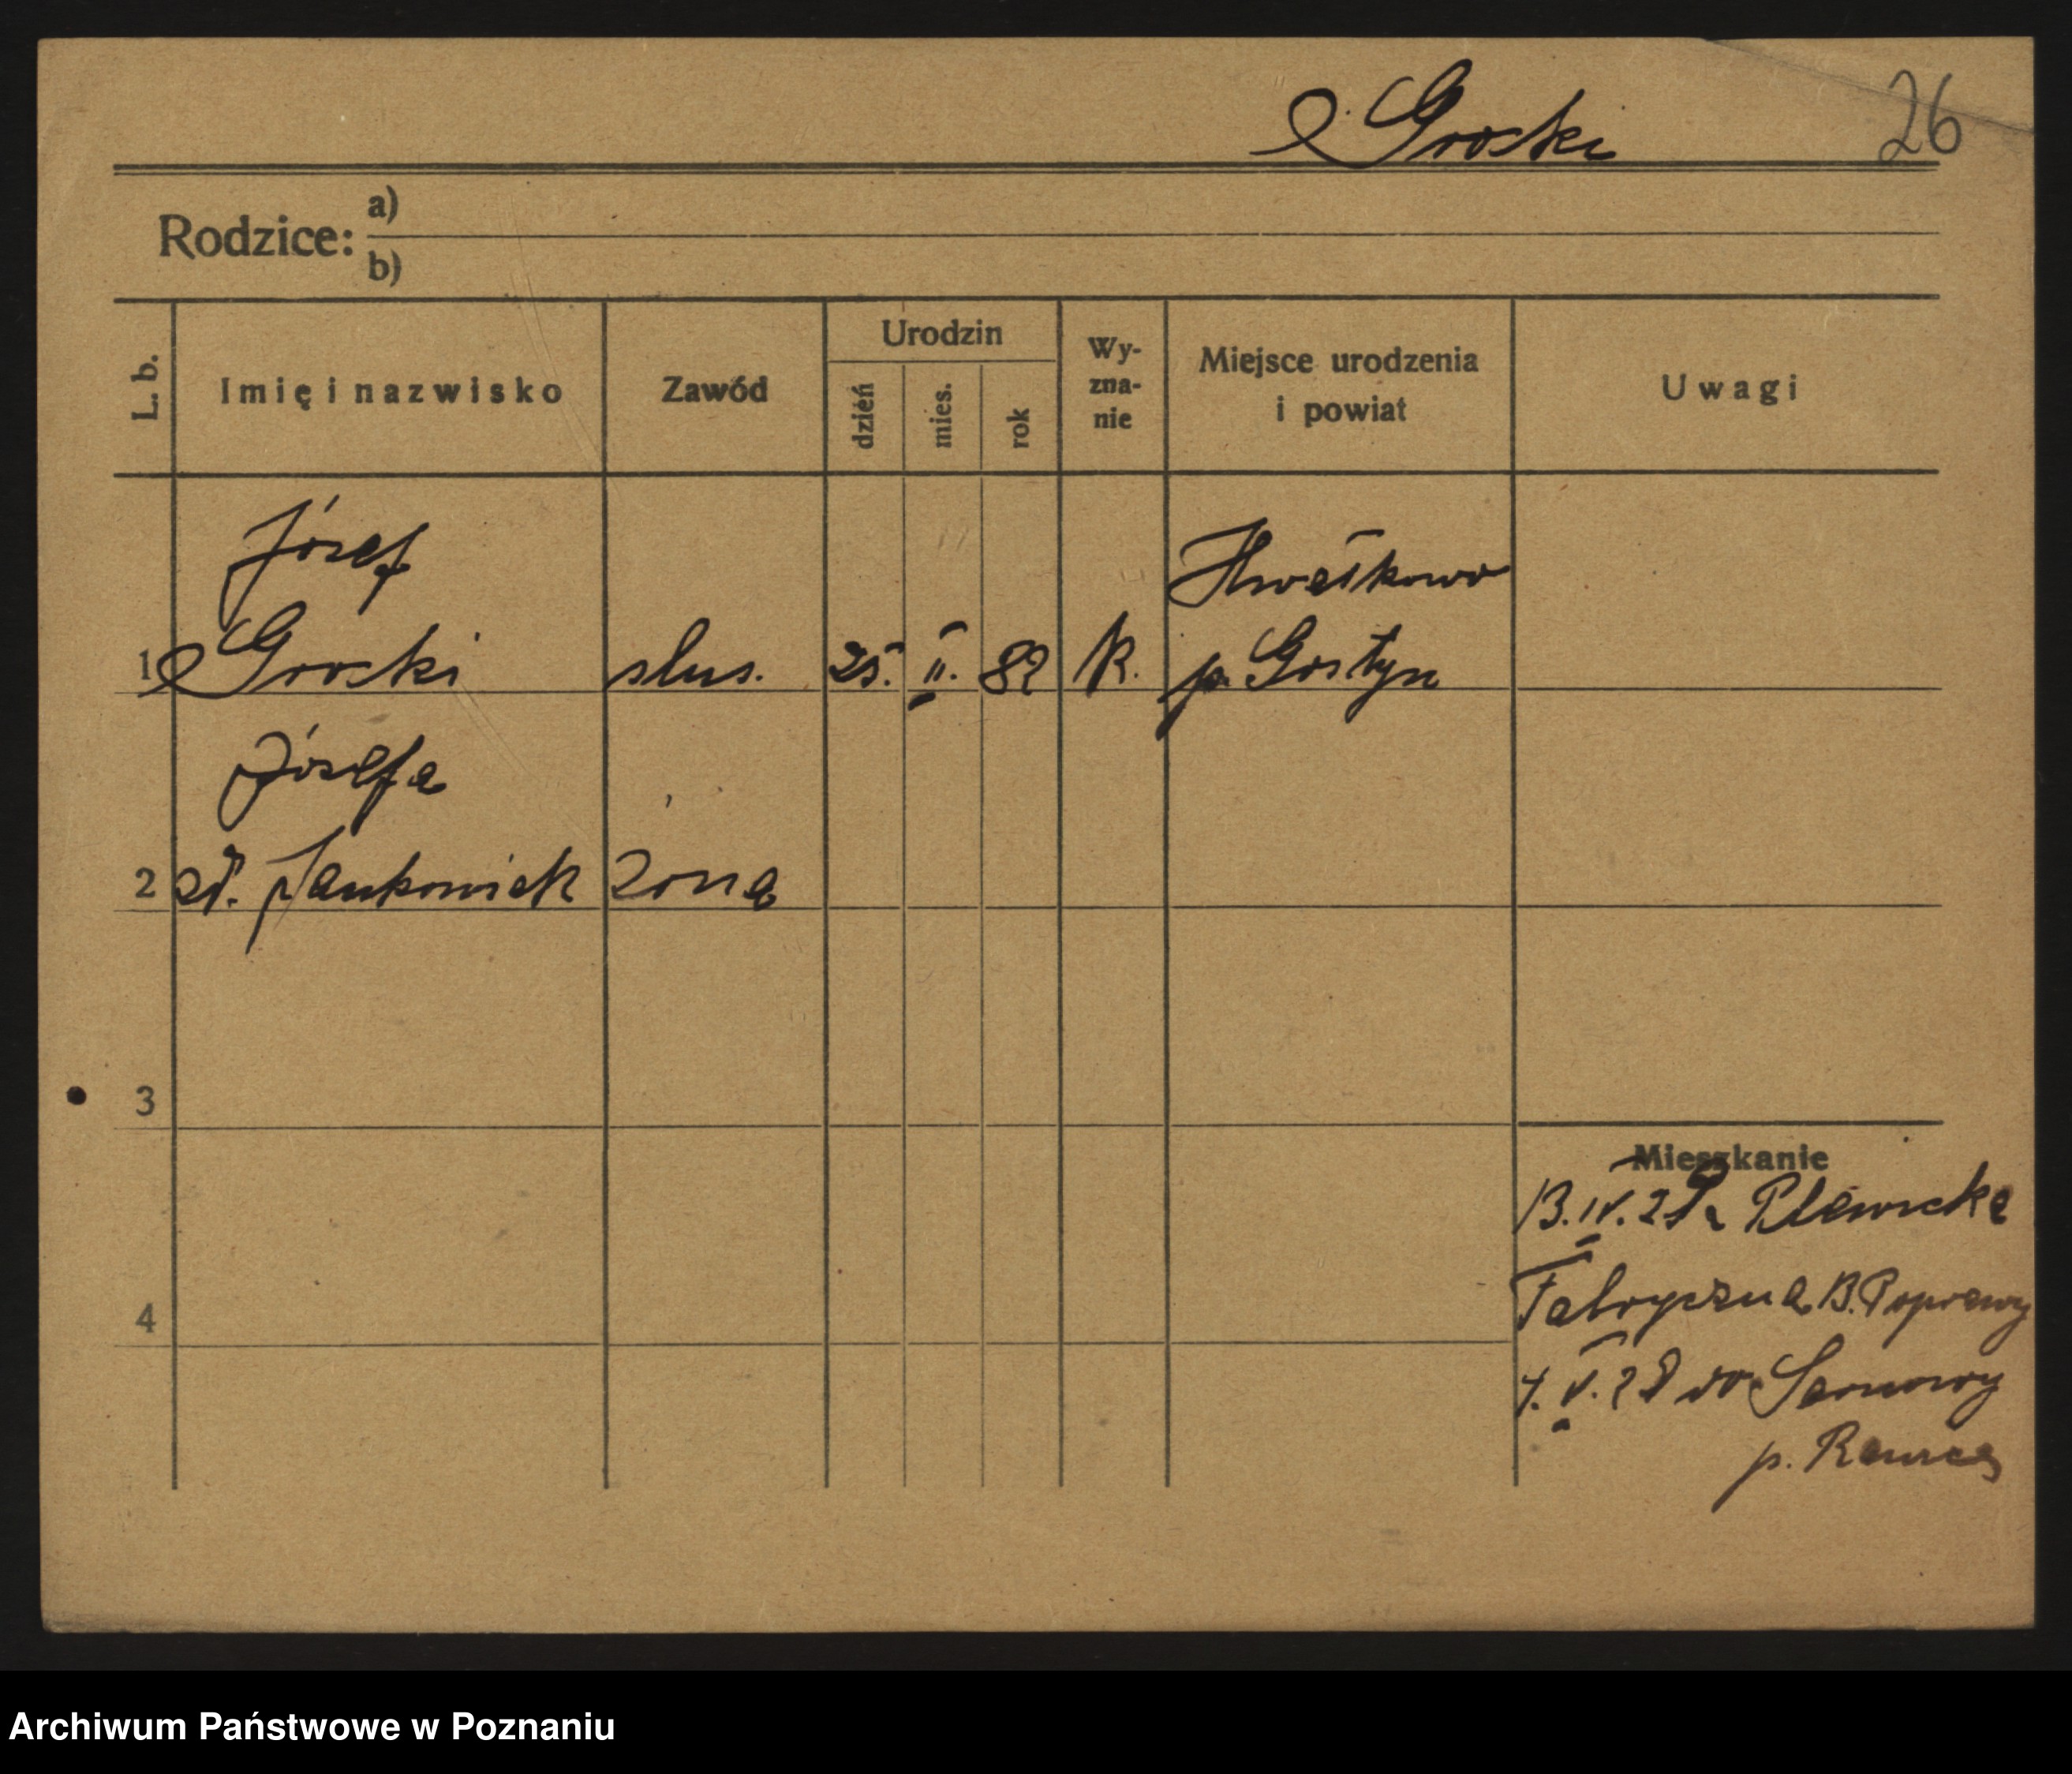 Groski
26
Rodzice: a)
b)
L. b. Imię i nazwisko Zawód Urodzin dzień mies. rok Wy-zna-nie Miejsce urodzenia i powiat Uwagi
Józef
1 Groski slus. 25. II. 82 K. p. Gostyn
Józefa
2 zd. Jankowiak żona
3
4
Mieszkanie
13. IV. 28 z Plewicka
Fabryczna B. Poprawy
7. V. 28 do Sarnowy
p. Rawicz
Archiwum Państwowe w Poznaniu